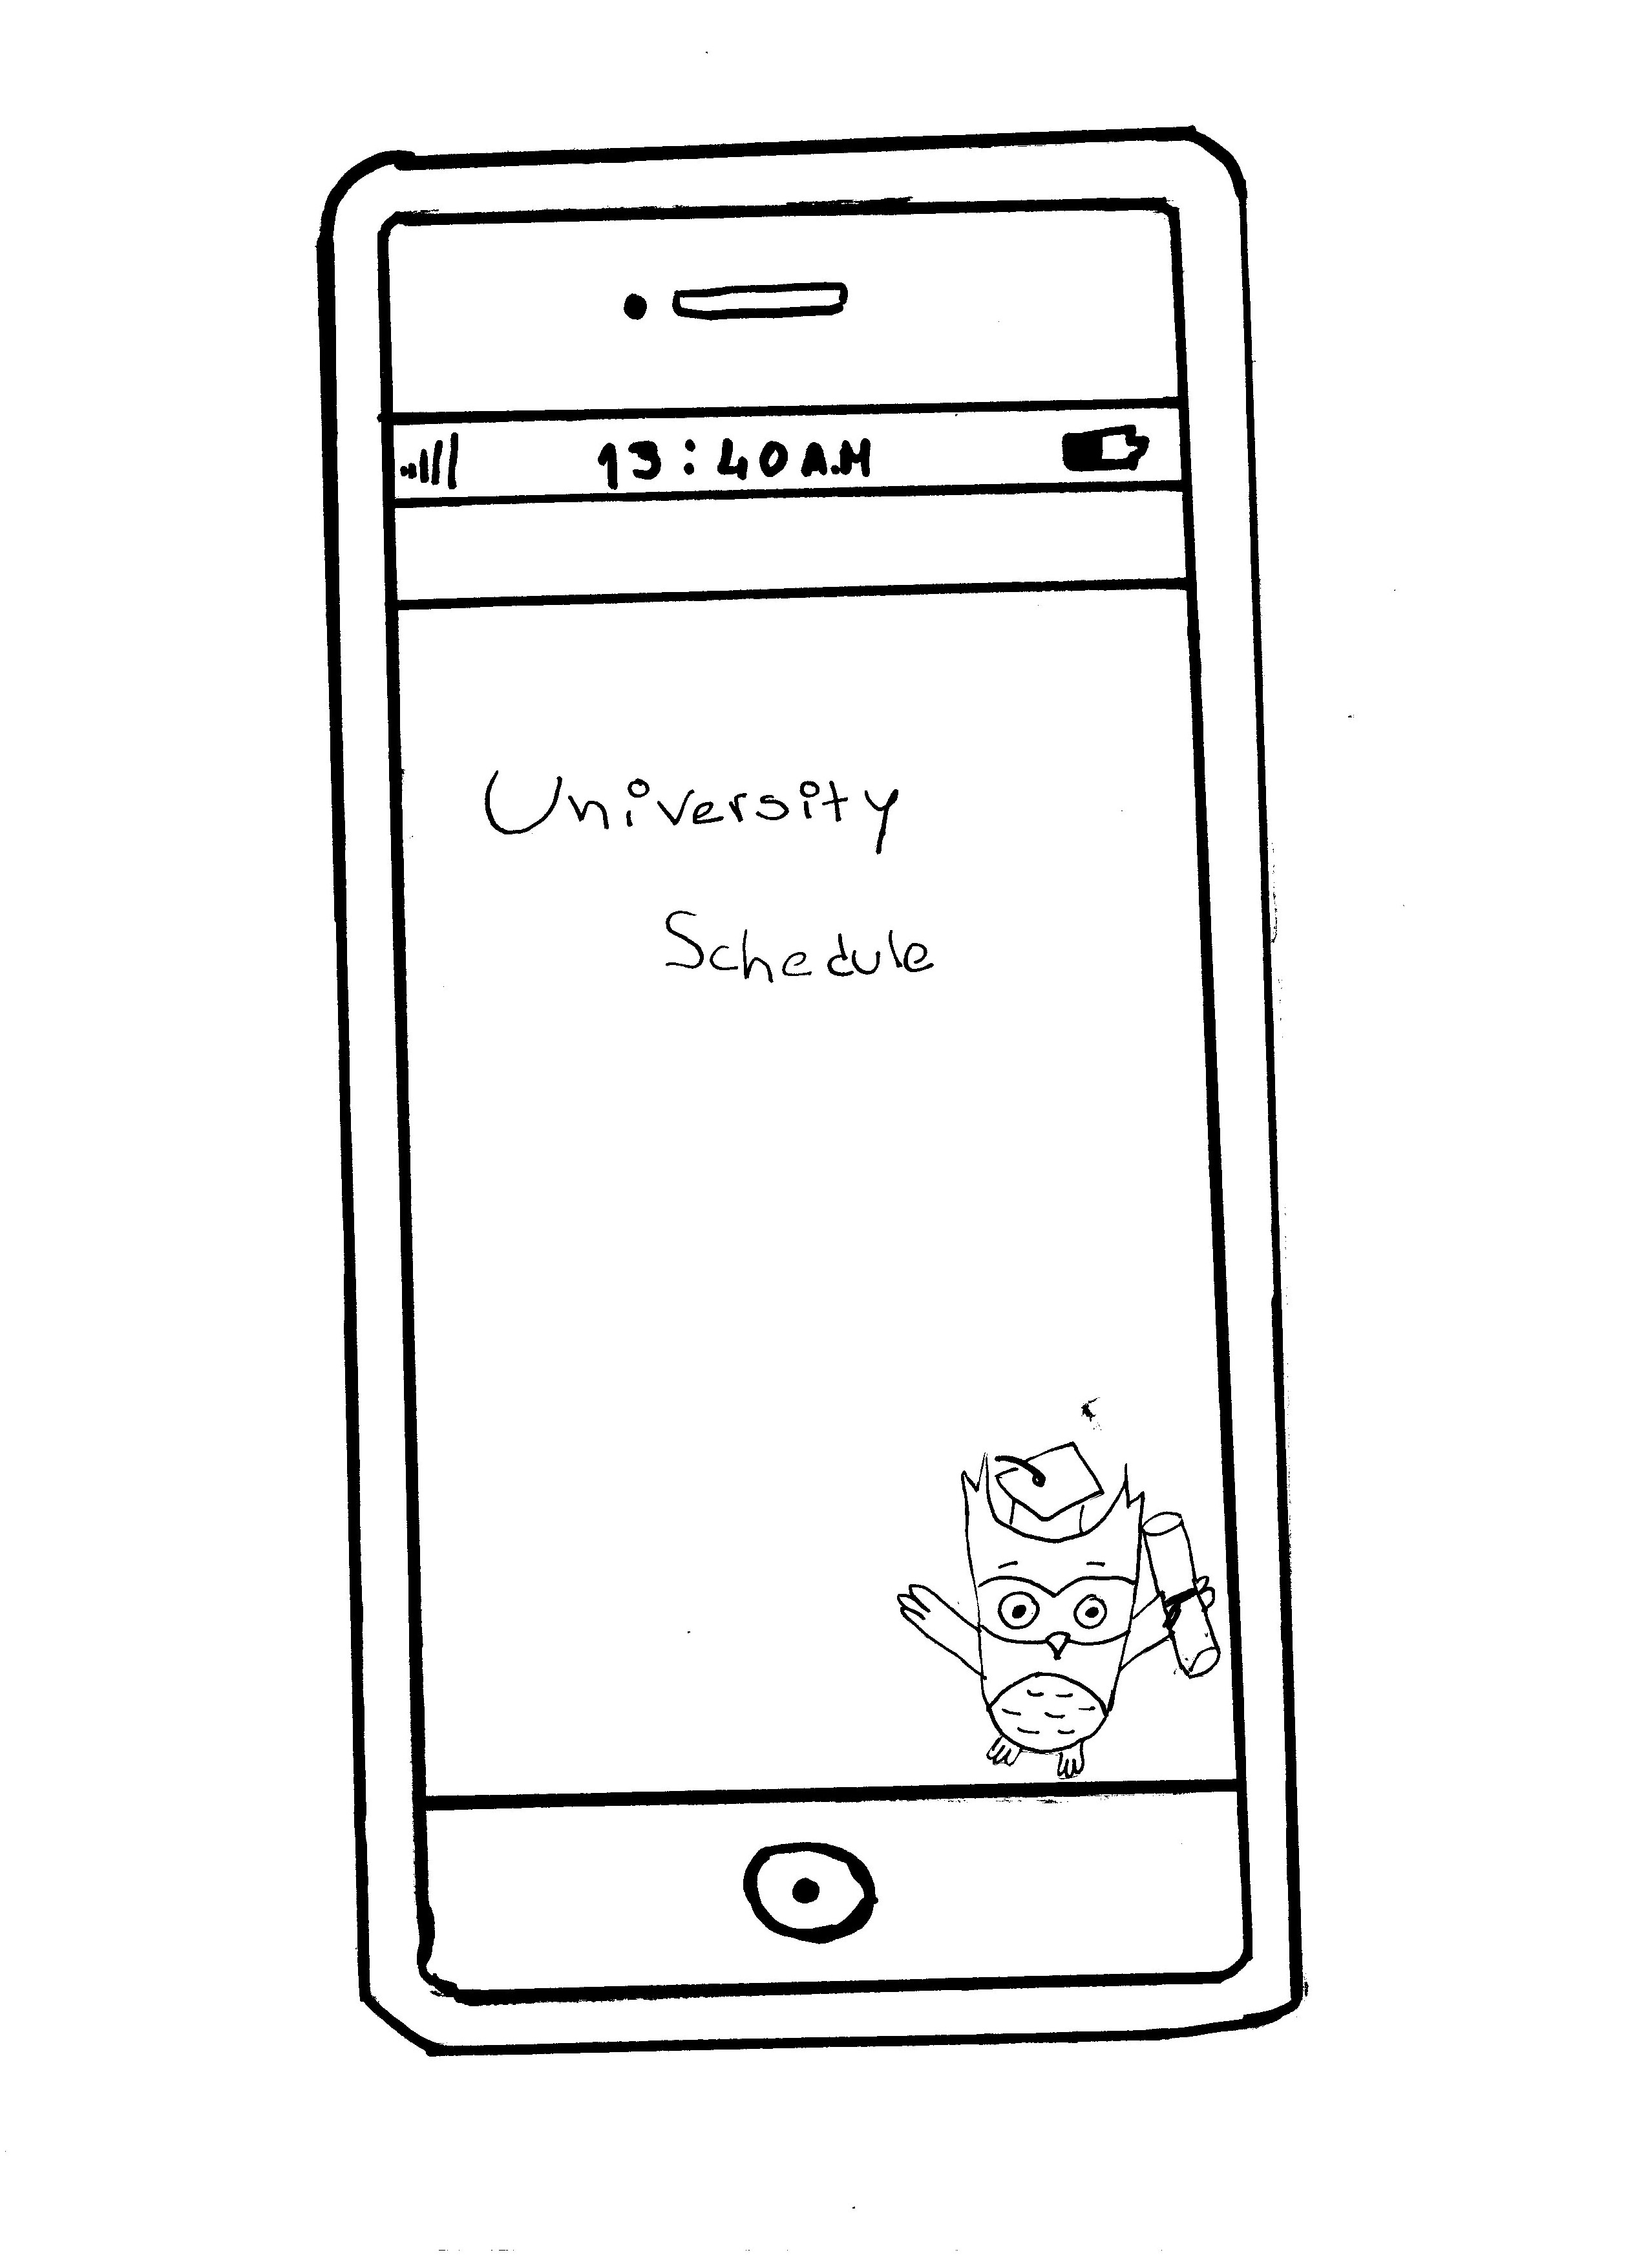 13:40 A.M
University
Schedule